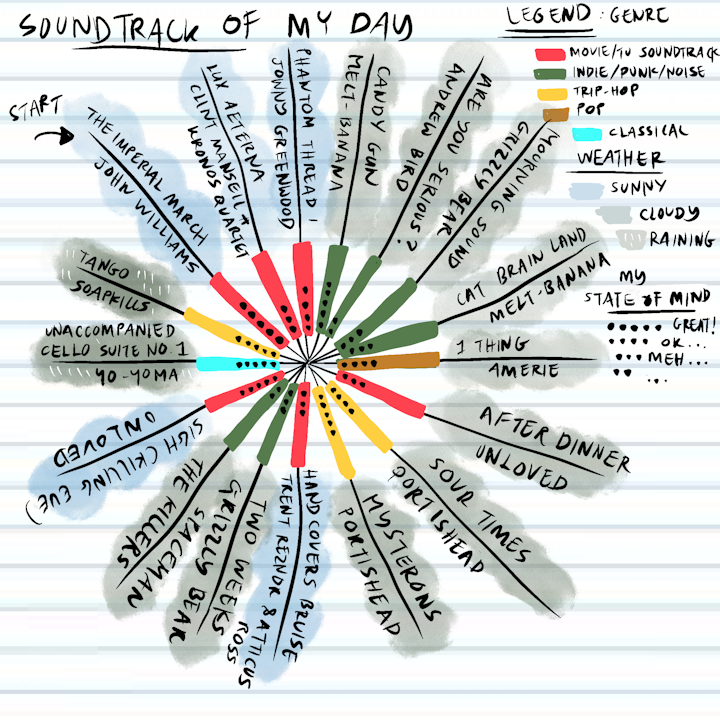 SOUNDTRACK OF MY DAY
START
THE IMPERIAL MARCH
JOHN WILLIAMS
LUX AETERNA
CLINT MANSELL +
KRONOS QUARTET
PHANTOM THREAD I
JONNY GREENWOOD
CANDY GUN
MELT-BANANA
ARE YOU SERIOUS?
ANDREW BIRD
MOURNING SOUND
GRIZZLY BEAR
CAT BRAIN LAND
MELT-BANANA
1 THING
AMERIE
AFTER DINNER
UNLOVED
SOUR TIMES
PORTISHEAD
MYSTERONS
PORTISHEAD
HAND COVERS BRUISE
TRENT REZNOR & ATTICUS
ROSS
TWO WEEKS
GRIZZLY BEAR
SPACEMAN
THE KILLERS
SIGH (KILLING EVE)
UNLOVED
UNACCOMPANIED
CELLO SUITE NO. 1
YO-YO MA
TANGO
SOAPKILLS
LEGEND: GENRE
MOVIE/TV SOUNDTRACK
INDIE/PUNK/NOISE
TRIP-HOP
POP
CLASSICAL
WEATHER
SUNNY
CLOUDY
RAINING
MY
STATE OF MIND
GREAT!
OK...
MEH...
...